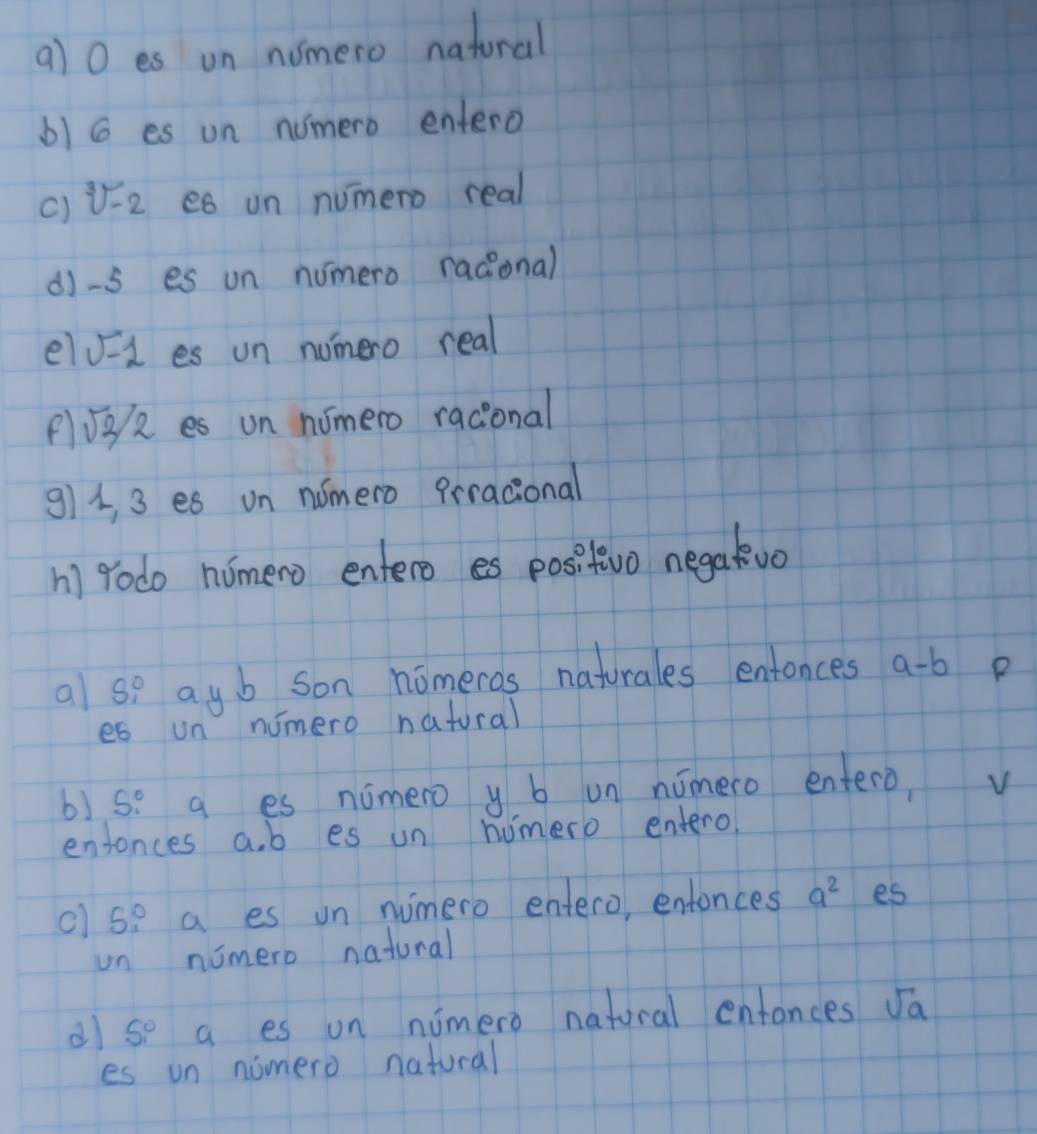 a) 0 es un número natural
b) 6 es un número entero
c) ∛-2 es un número real
d) -5 es un número racional
e) √-1 es un número real
f) √2/2 es un número racional
g) 1,3 es un número irracional
h) Todo número entero es positivo negativo
a) Si a y b son números naturales entonces a-b F
es un número natural
b) Si a es número y b un número entero, V
entonces a.b es un número entero.
c) Si a es un número entero, entonces a² es
un número natural
d) Si a es un número natural entonces √a
es un número natural